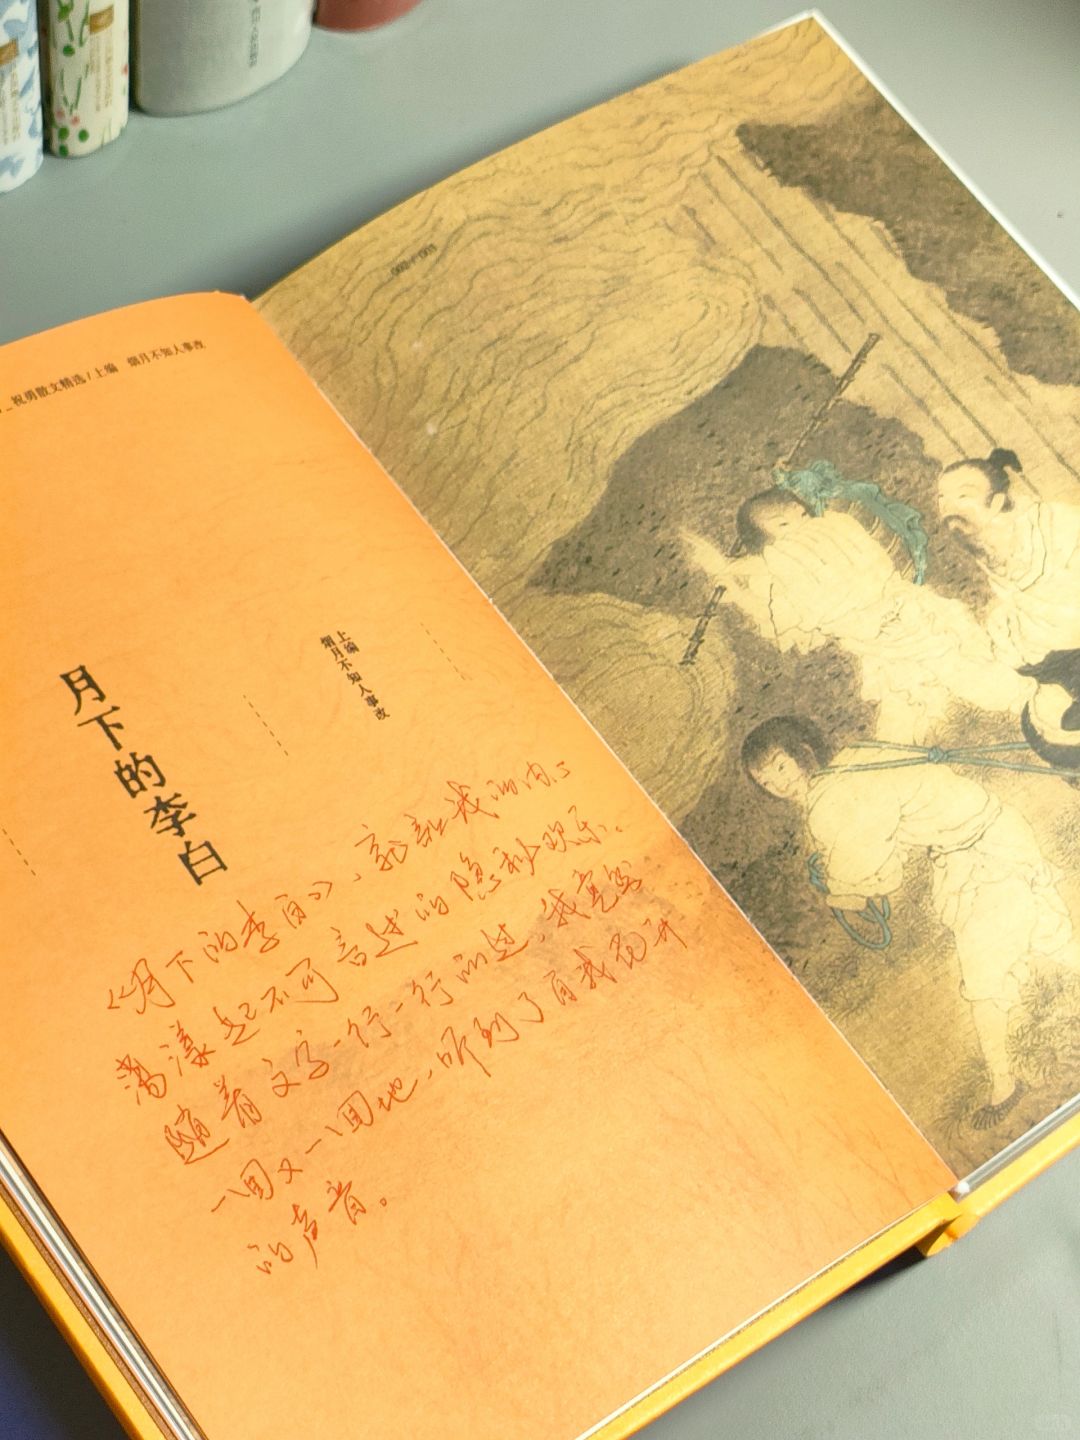 祝勇散文精选/上编 烟月不知人事改
002-003
上编
烟月不知人事改
月下的李白
《月下的李白》，我的内心
荡漾起不可言述的隐秘欢乐。
随着文字一行一行的过，我竟然
一回又一回地，听到了自我花开
的声音。